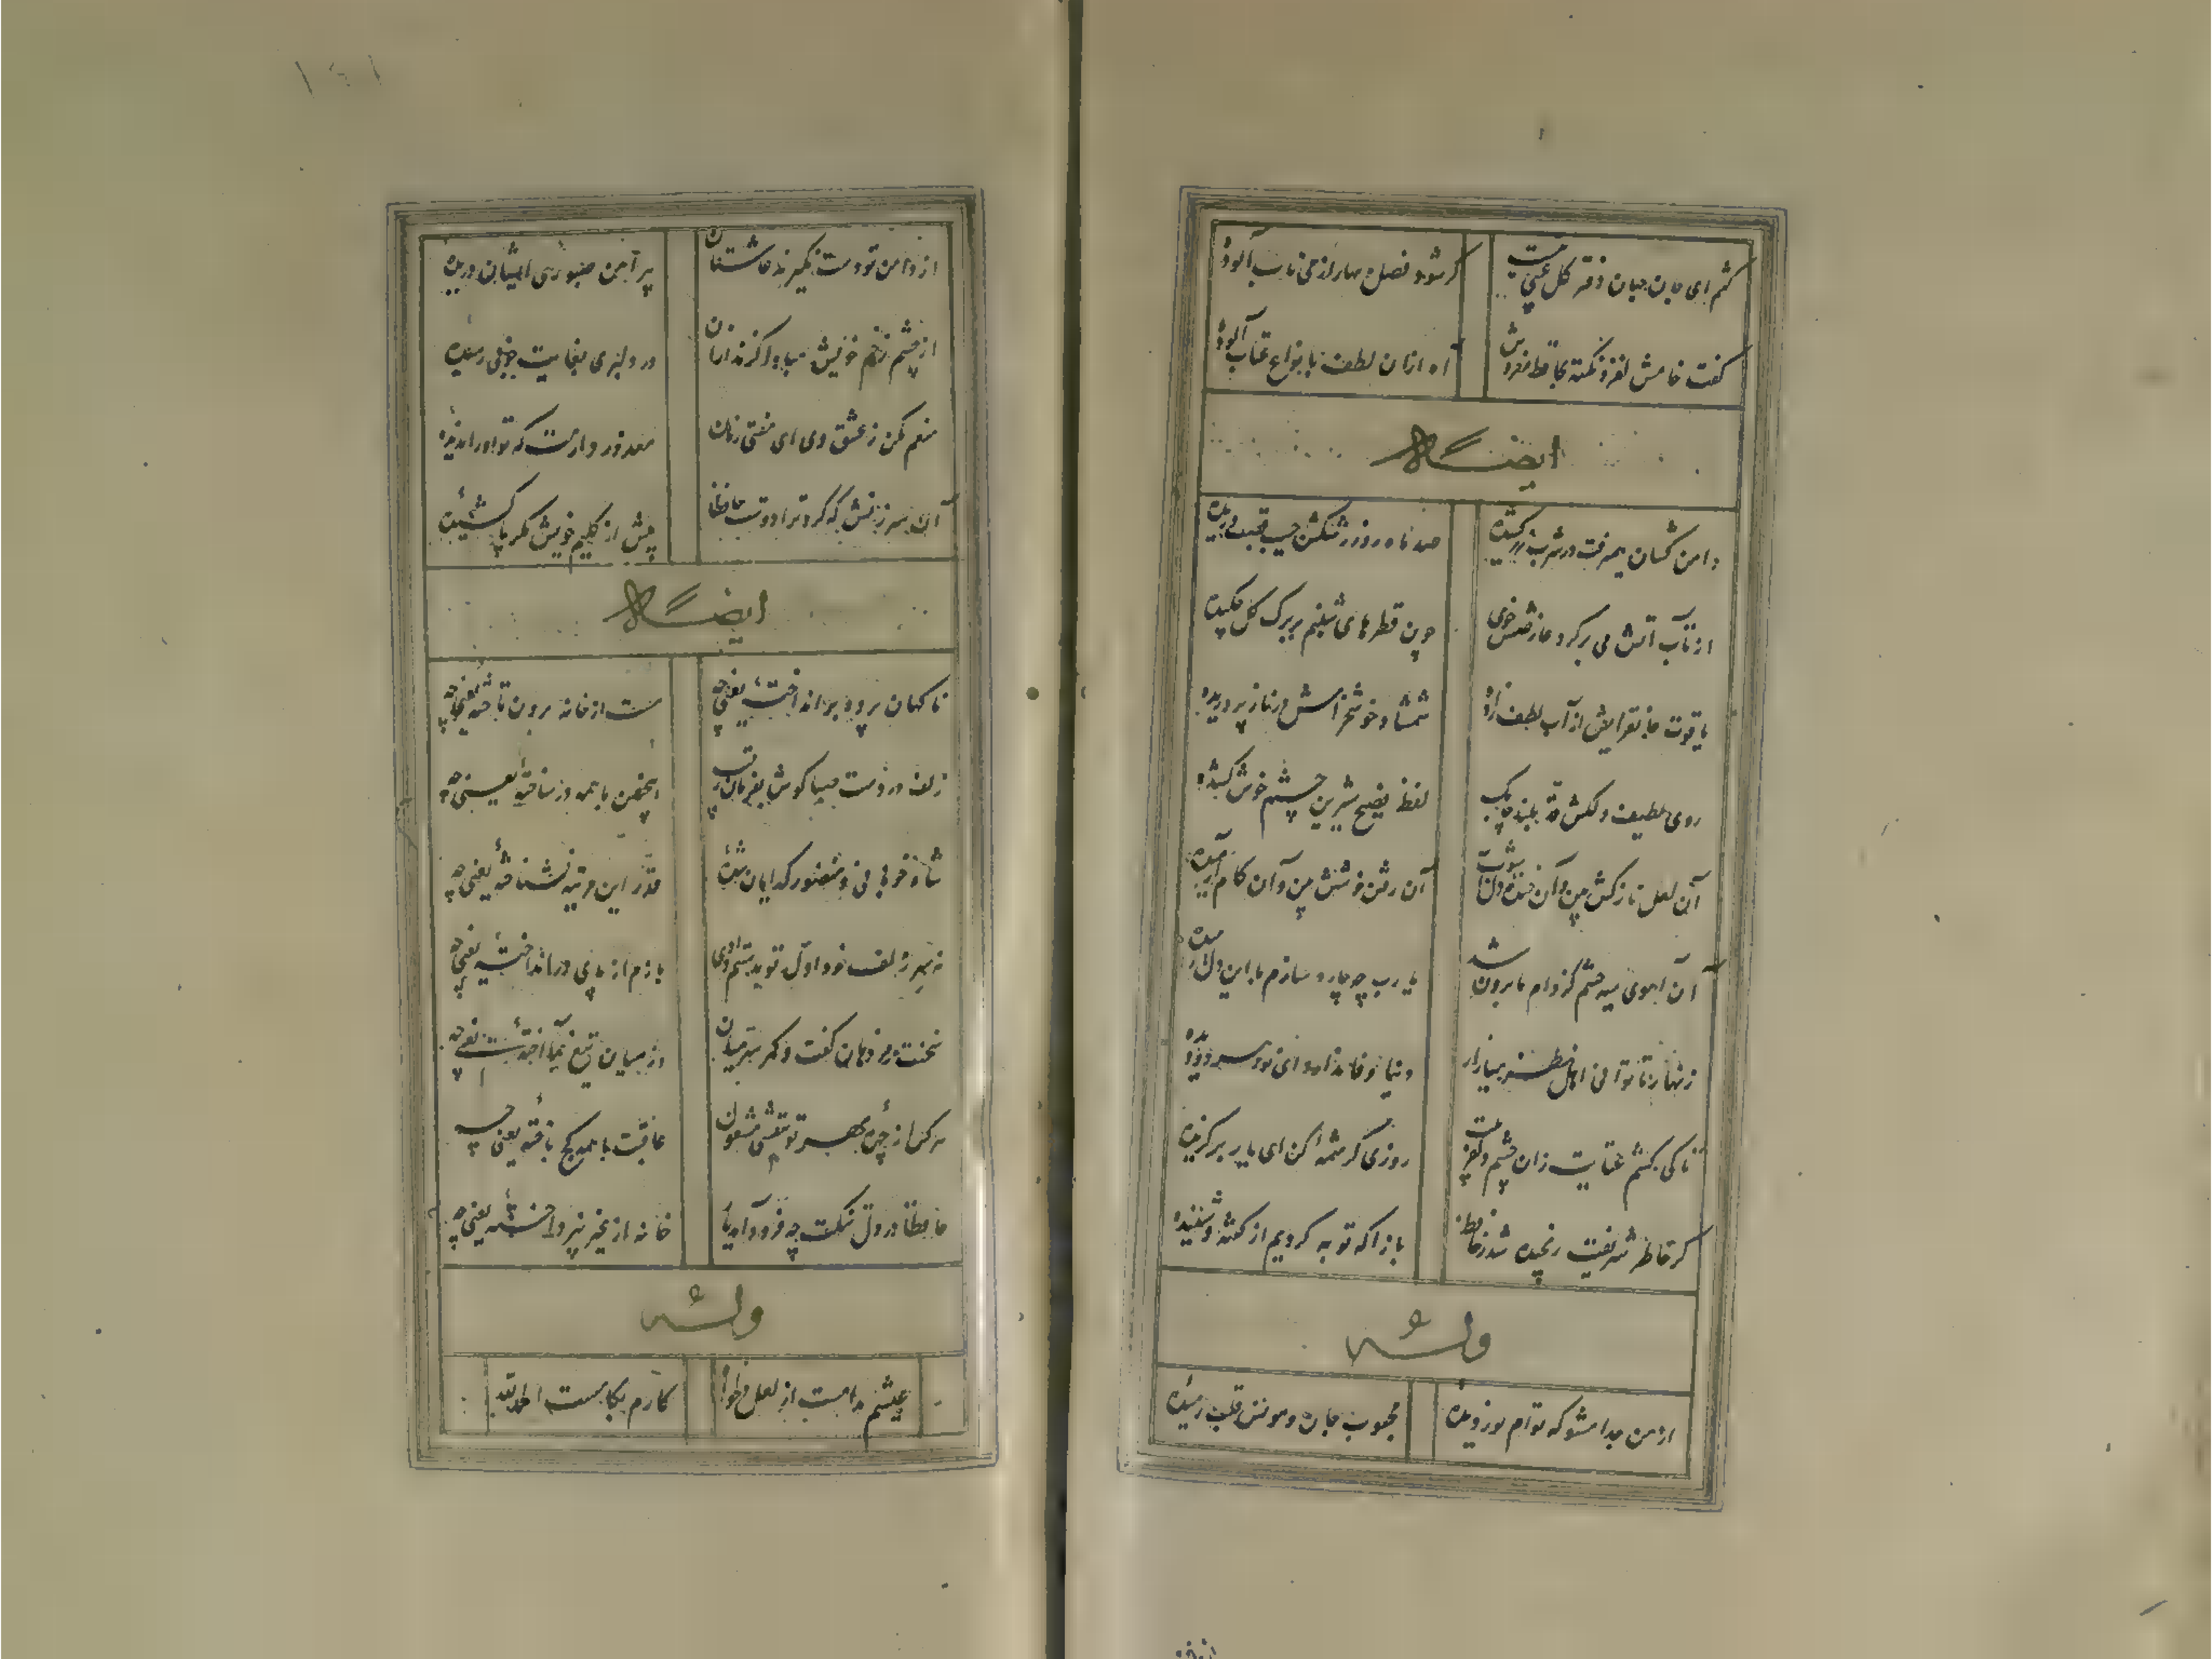 گفتم ای جان جهان دفتر گل عیبی نیست
گر شود فصل بهار از می ناب آلوده
گفت حافظ لغز و نکته بحافظ مفروش
آه ازان لطف بانواع عتاب آلوده
ایضاله
دامن کشان همیرفت در شرب زر کشیده
صد ماه رو ز رشکش جیب قصب دریده
از تاب آتش می بر گرد عارضش خوی
چون قطرهای شبنم بر برگ گل چکیده
یاقوت جانفزایش از آب لطف زاده
شمشاد خوشخرامش در ناز پروریده
روی لطیف دلکش قد بلند چابک
لفظ فصیح شیرین چشم خوش کشیده
آن لعل نازکش بین وآن خنده دل آشوب
آن رفتن خوشش بین وآن گام آرمیده
آن آهوی سیه چشم کز دام ما برون شد
یا رب چه چاره سازم با این دل رمیده
زنهار تا توانی اهل نظر میازار
دنیا وفا ندارد ای نور هر دو دیده
تا کی کشم عتابت زان چشم دلفریبت
روزی کرشمه کن ای یار برگزیده
گر خاطر شریفت رنجیده شد ز حافظ
بازآ که توبه کردیم از گفته و شنیده
وله
از من جدا مشو که توام نور دیده
محبوب جان و مونس قلب رمیده
از دامن تو دست نگیرند عاشقان
پیراهن صبوری ایشان دریده
از چشم زخم خویش مبادا گزند ازان
در دلبری بغایت خوبی رسیده
منعم مکن ز عشق وی ای مفتی زمان
معذور دارمت که تو او را ندیده
آن سرزنش که کرد ترا دوست حافظا
پیش از گلیم خویش مگر پا کشیده
ایضاله
ناگهان پرده برانداخته یعنی چه
مست از خانه برون تاخته یعنی چه
زلف در دست صبا گوش بفرمان رقیب
اینچنین با همه در ساخته یعنی چه
شاه خوبانی و منظور گدایان شده
قدر این مرتبه نشناخته یعنی چه
نه سر زلف خود اول تو بدستم دادی
بازم از پای در انداخته یعنی چه
سخنت رمز دهان گفت و کمر سر میان
وز میان تیغ بما آخته یعنی چه
هر کس از مهره مهر تو بنقشی مشغول
عاقبت با همه کج باخته یعنی چه
حافظا در دل تنگت چو فرود آمد یار
خانه از غیر نپرداخته یعنی چه
وله
عیشم مدامست از لعل دلخواه
کارم بکامست الحمدلله